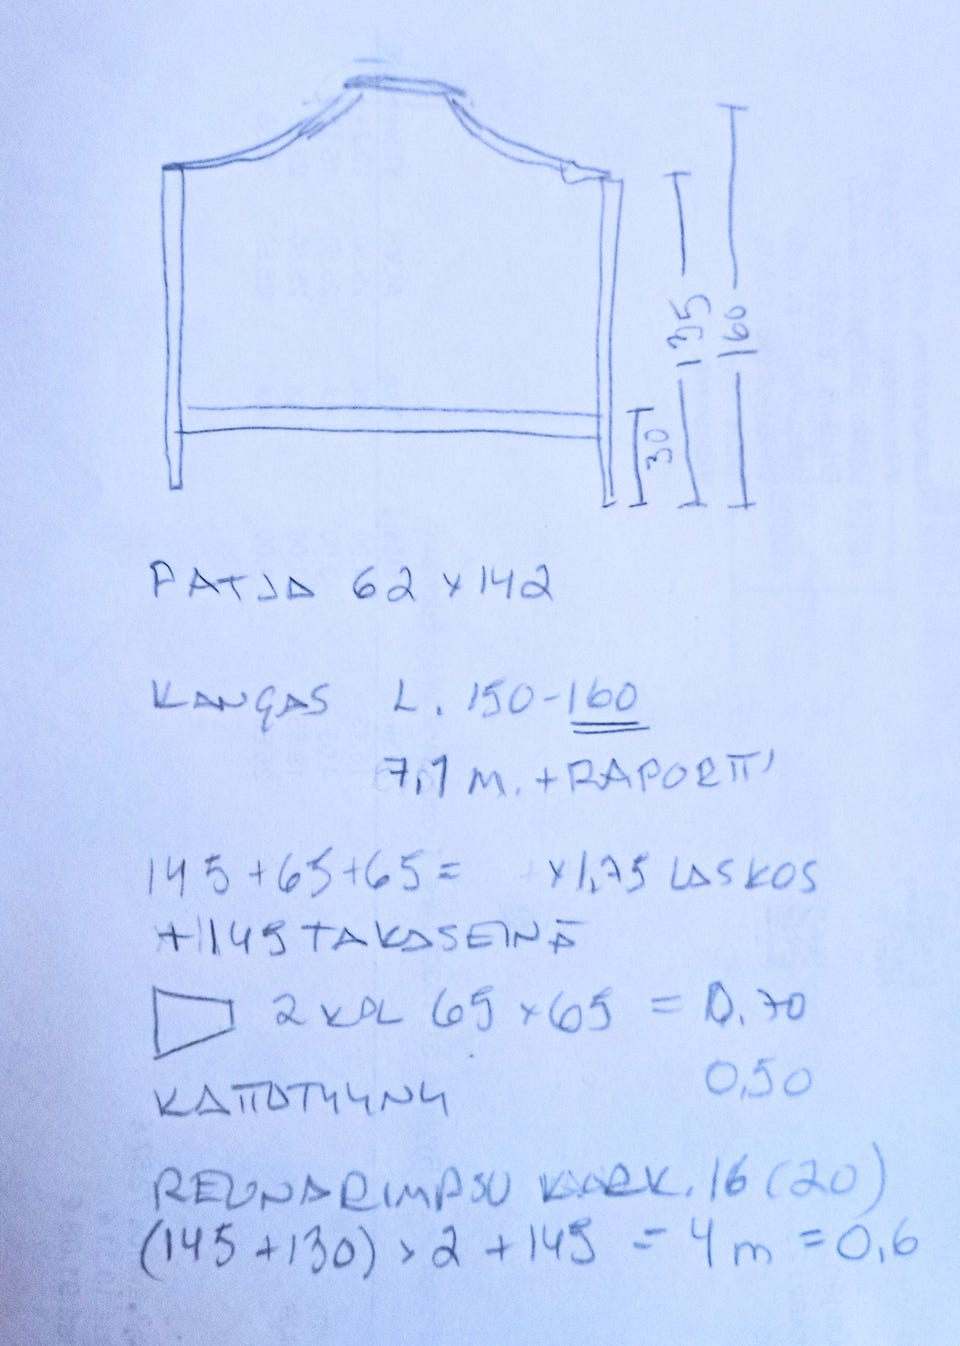 30
135
160
PATJA 62 x 142
KANGAS L. 150-160
7,1 m. + RAPORTTI
145+65+65= x1,75 LASKOS
+145 TAKASEINÄ
2 KPL 65 x 65 = 0.70
KATTOTYYNY 0,50
REUNARIMPSU KORK. 16 (20)
(145+130) x 2 + 145 = 4 m = 0,6